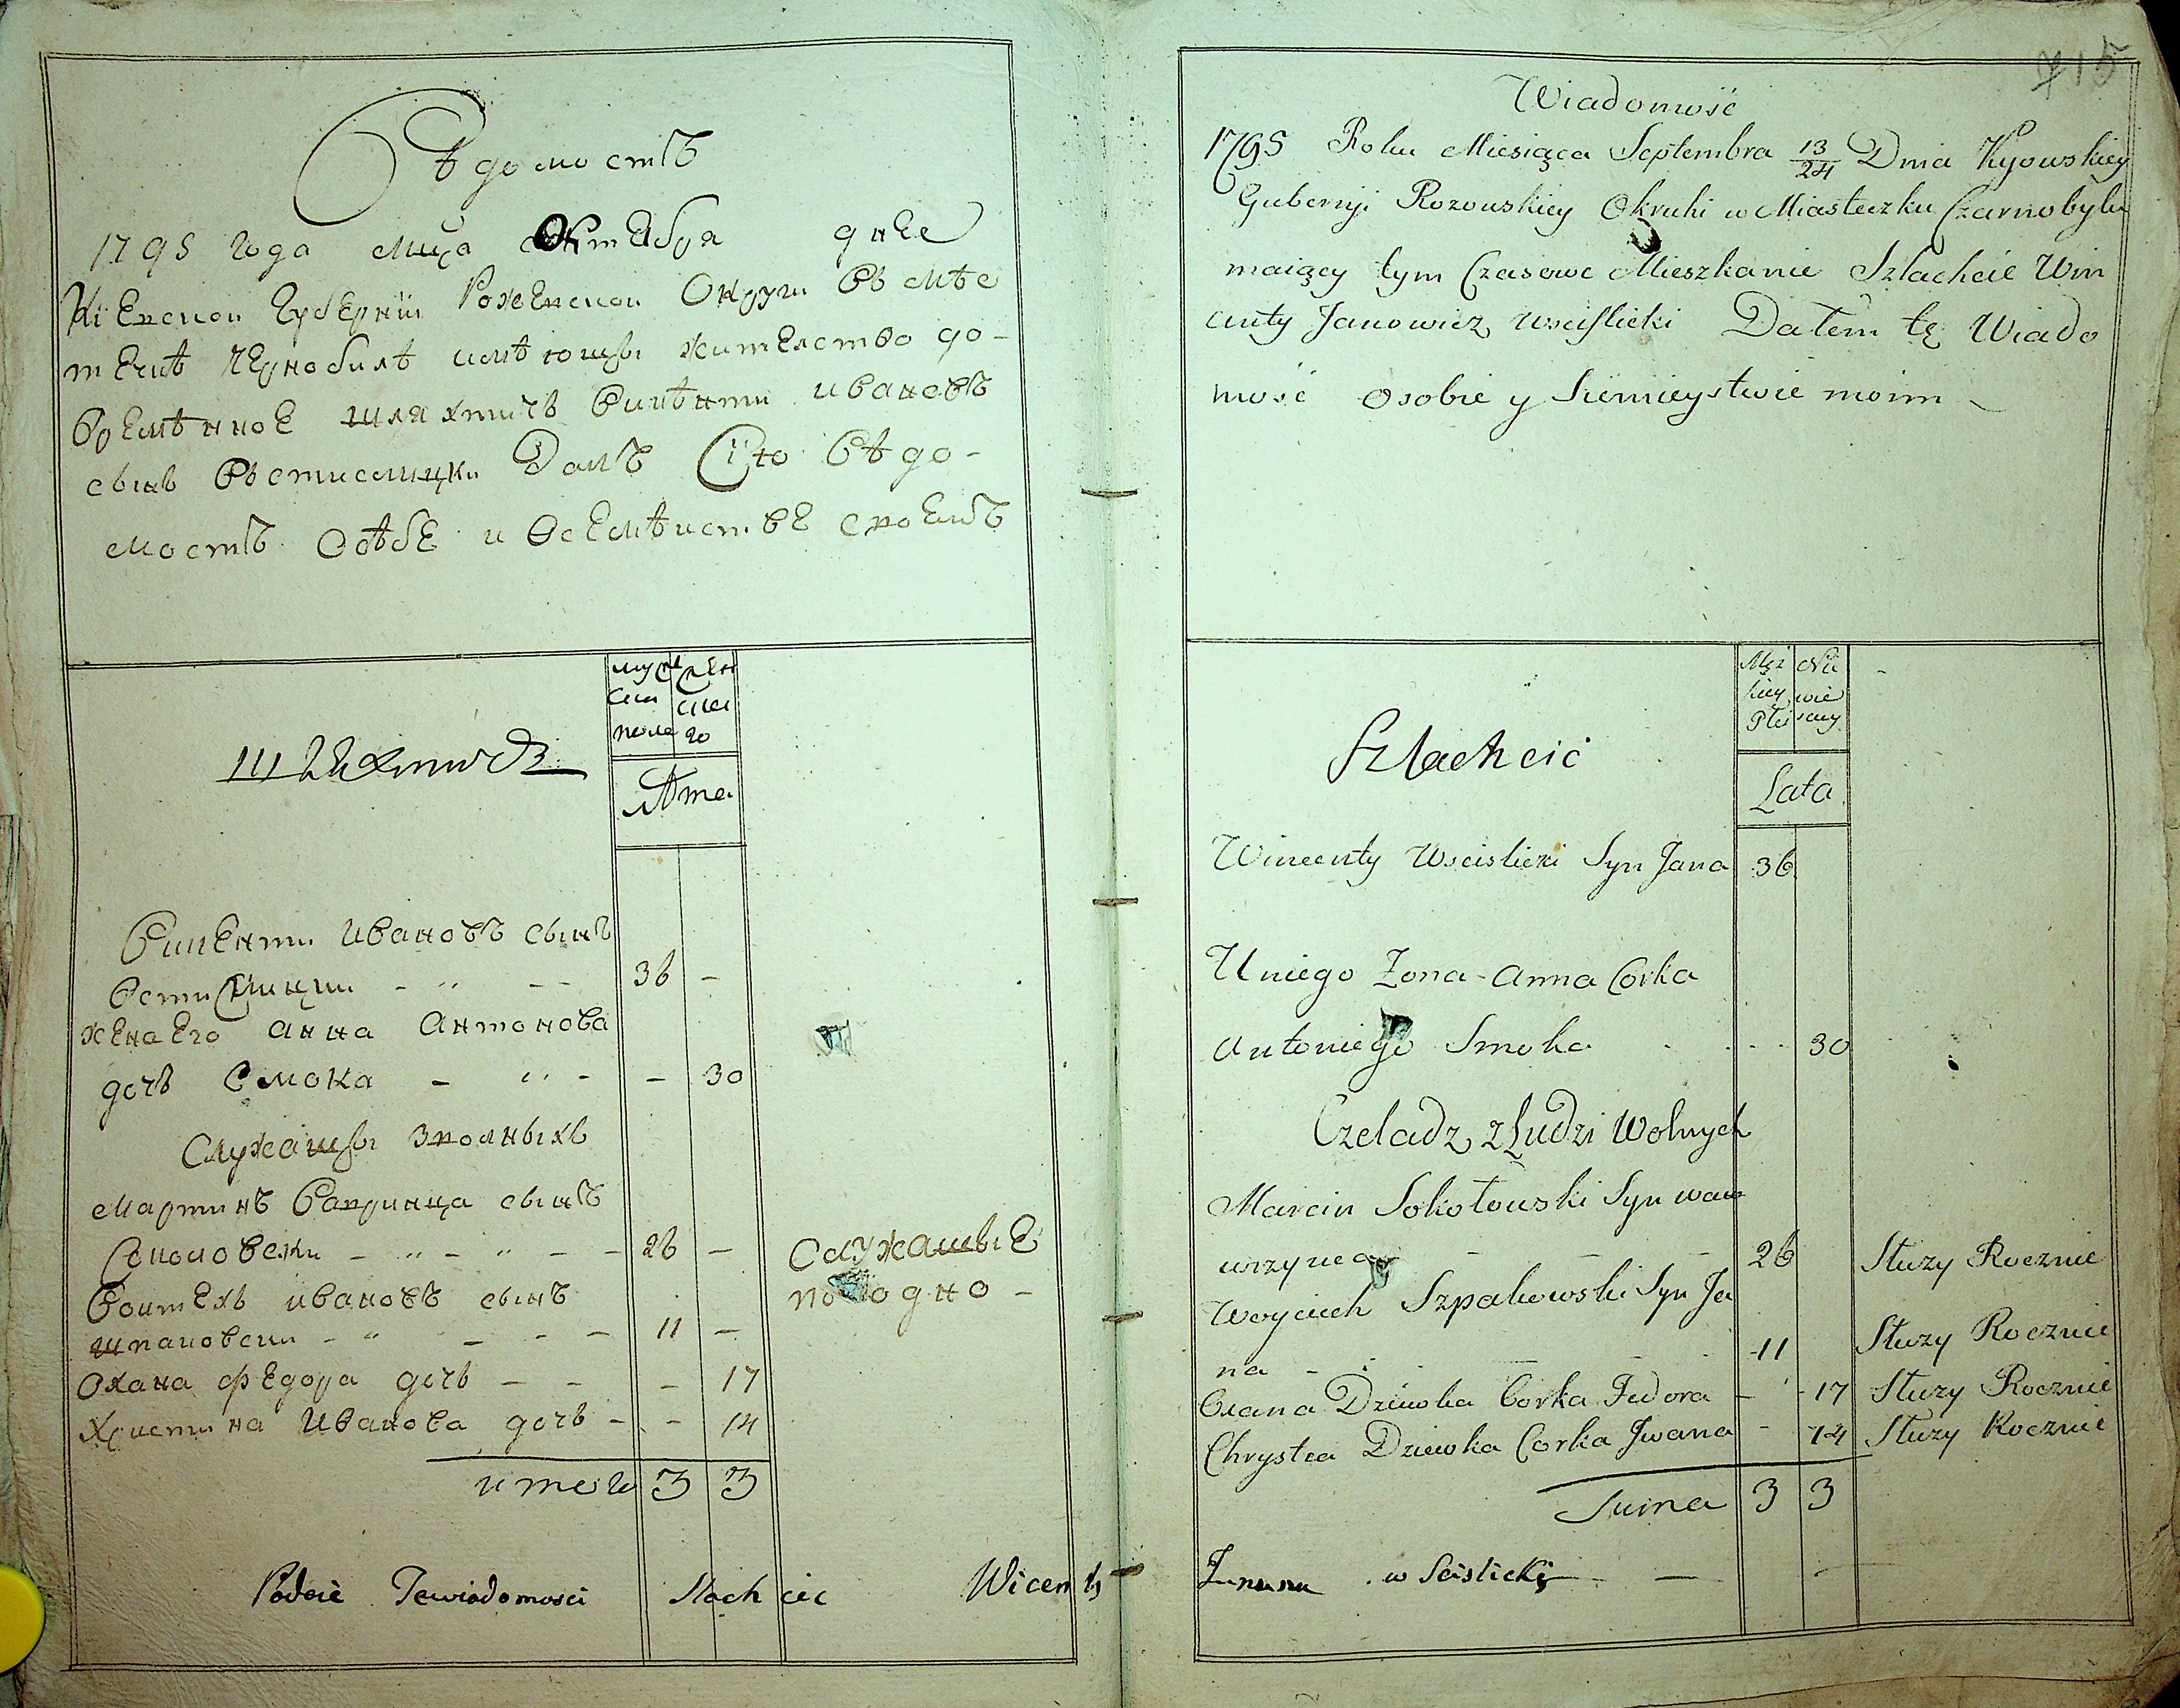 Вѣдомость
1795 года мца Октебря дня
Кіевской губерніи Рожевской Округи въ мѣс
течкѣ Чернобилѣ имѣющы жителство до-
времѣнное шляхтичъ Вицѣнти Ивановъ
сынъ Встислицки Далъ Сію вѣдо-
мость Осѣбе и Осемѣистве своемъ
муже ска пола
жен ска го
Шляхтичъ
Лѣта
Винценти Ивановъ сынъ
Встислицки - " - - 36 -
жена Его Анна Антонова
дочь Смока - " - - 30
Служащы зволныхъ
Мартинъ Вавринца сынъ
Соколовски - " - " - - 26 - Служащые
Воитехъ Ивановъ сынъ погодно -
шпаковски - " - - - 11 -
Охана Федора дочь - - - 17
Христина Иванова дочь - - 14
итого 3 3
Podaie Tewiadomosci Slach cic Wicenty
715
Wiadomość
1795 Roku Miesiąca Septembra 13/24 Dnia Kyowskiey
Gubernyi Rozowskiey Okruhi w Miasteczku Czarnobylu
maiący tym Czasowe Mieszkanie Szlachcic Win
centy Janowicz Wscislicki Dałem tę Wiado
mość Osobie y Siemieystwie moim
Męż kiey Płci
Nie wie sciey
Szlachcic
Lata
Wincenty Wscislicki Syn Jana 36
U niego Zona Anna Corka
Antoniego Smoka - - - 30
Czeladz z Ludzi Wolnych
Marcin Sokołowski Syn waw
wrzynca - - - 26 Służy Rocznie
Woyciech Szpakowski Syn Ja
na - - - 11 Służy Rocznie
Oxana Dziewka Corka Fedora - - 17 Służy Rocznie
Chrystia Dziewka Corka Jwana - 14 Służy Rocznie
Suma 3 3
w Scislicki - -